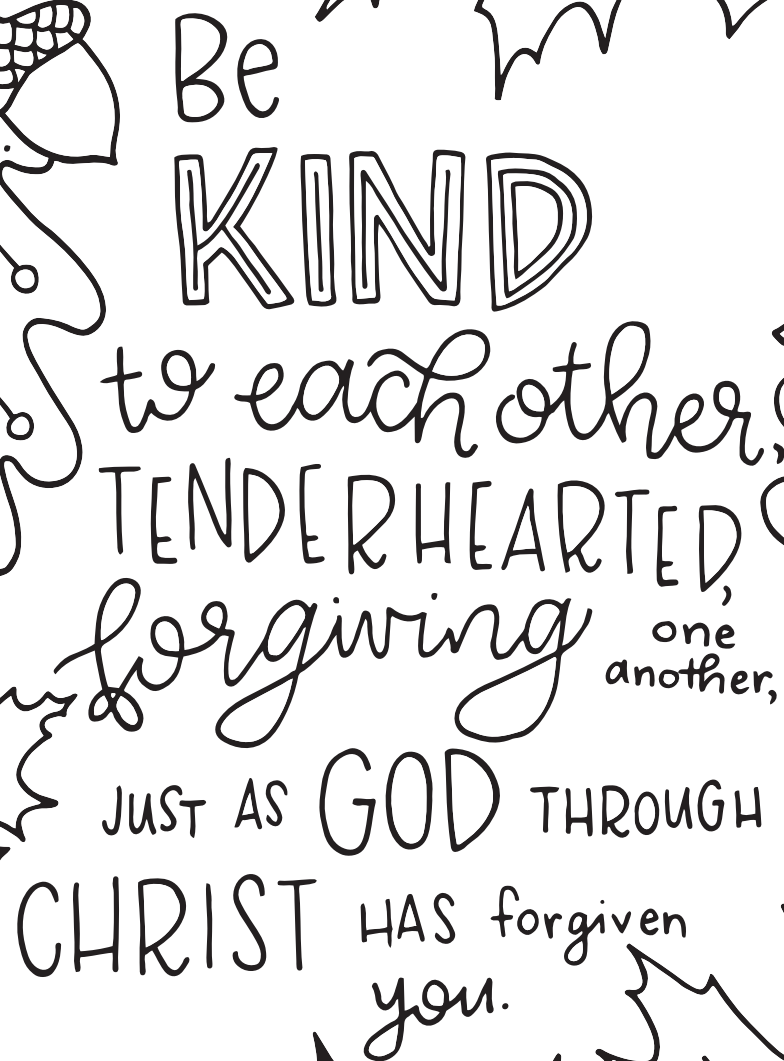 Be
KIND
to each other,
TENDERHEARTED,
forgiving one
another,
JUST AS GOD THROUGH
CHRIST HAS forgiven
you.